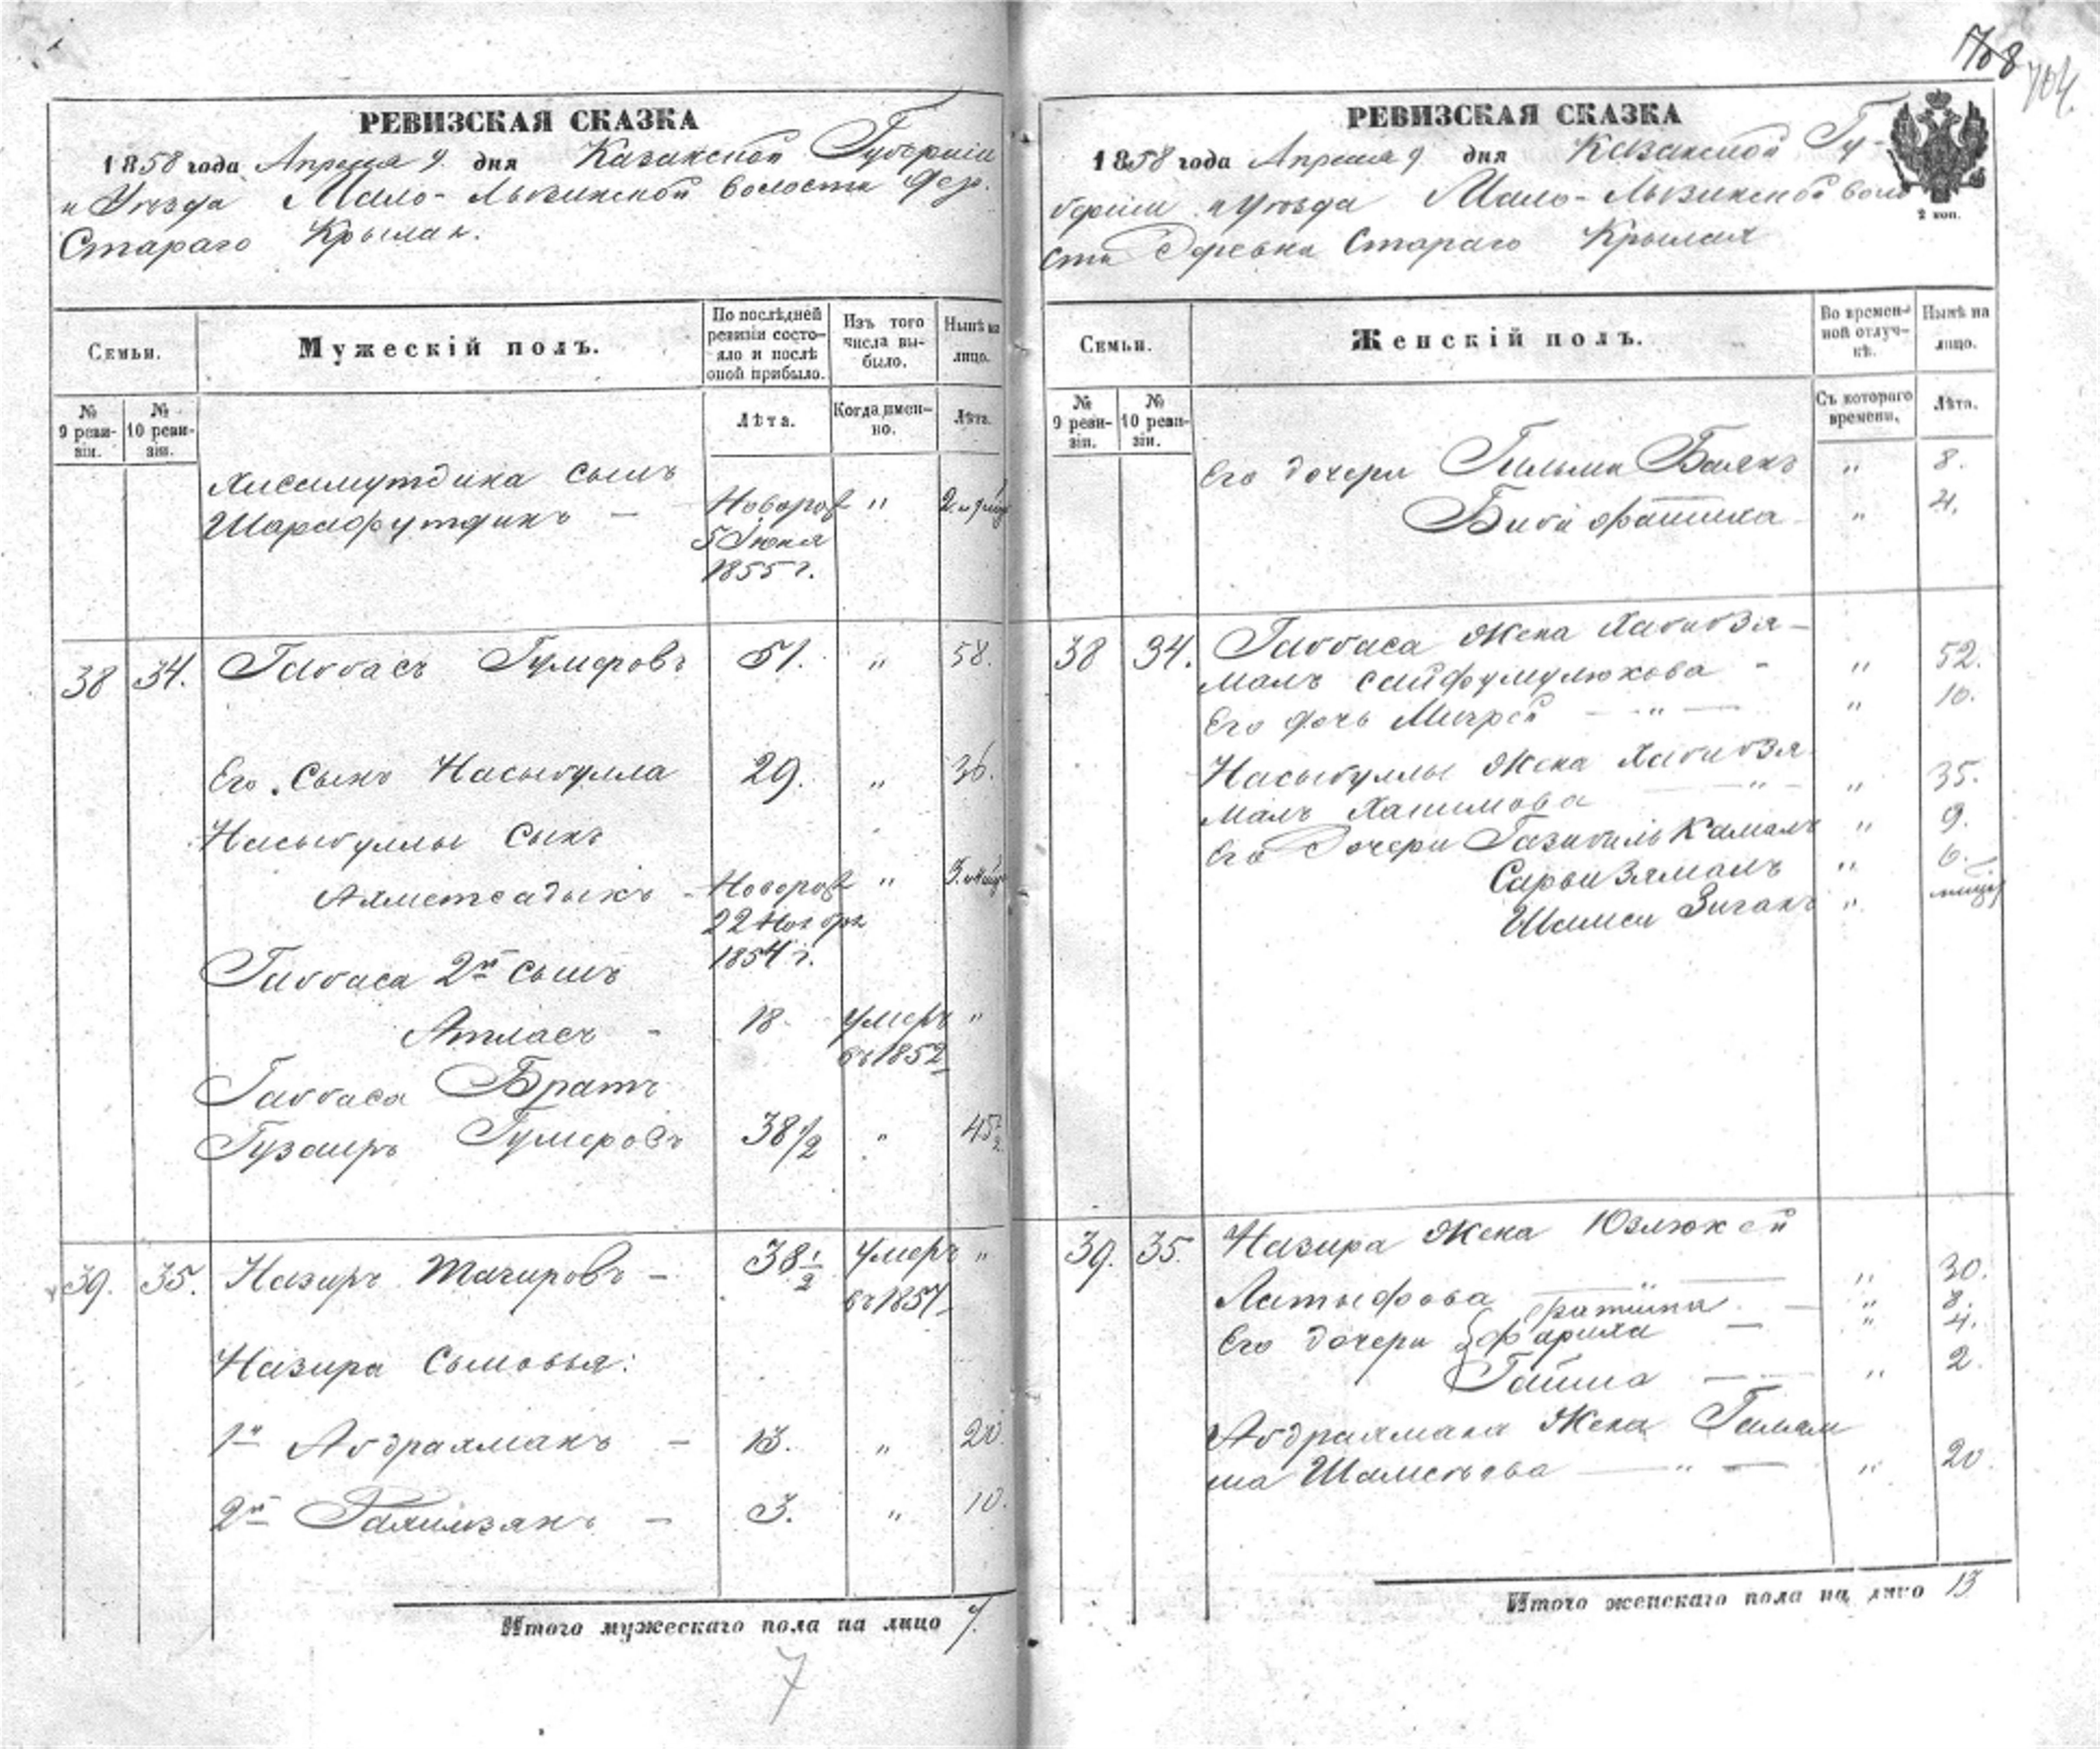 708
704.
РЕВИЗСКАЯ СКАЗКА
1858 года Апреля 9. дня Казанской Губернии
и Уезда Мало-Лызинской волости дер.
Стараго Крылая.
Семьи.
Мужескій полъ.
По послѣдней ревизіи состояло и послѣ оной прибыло.
Изъ того числа выбыло.
Нынѣ на лицо.
№ 9 ревизіи.
№ 10 ревизіи.
Лѣта.
Когда именно.
Лѣта.
Хисамутдина сынъ
Шарафутдинъ — Новорож " 2 и 9 мѣц
5 Июня
1855 г.
38 34. Габбасъ Гумеровъ 51. " 58.
Его сынъ Насыбулла 29. " 36.
Насыбуллы сынъ
Ахметсадыкъ - Новорож " 3. и 4 мѣц
22 Ноября
1854 г.
Габбаса 2й сынъ
Атласъ - 18 умеръ "
въ 1852
Габбаса Братъ
Гузаиръ Гумеровъ 38 1/2 " 45 1/2
39. 35. Назиръ Тагировъ — 38 1/2 умеръ "
въ 1857
Назира сыновья:
1й Абдрахманъ — 13. " 20.
2й Галимзянъ — 3. " 10.
Итого мужескаго пола на лицо 7.
7
РЕВИЗСКАЯ СКАЗКА
1858 года Апреля 9 дня Казанской Гу-
берніи и Уѣзда Мало-Лызинской воло
сти Деревни Стараго Крылая
2 коп.
Семьи.
Женскій полъ.
Во временной отлучкѣ.
Нынѣ на лицо.
№ 9 ревизіи.
№ 10 ревизіи.
Съ котораго времени.
Лѣта.
Его дочери Гильми Баянъ " 8.
Биби Фатиха " 4.
38 34. Габбаса Жена Хабибзя-
малъ Сайфумулюкова - " 52.
Его дочь Мигрей — " — " 10.
Насыбуллы Жена Хабибзя
малъ Хашимова " " 35.
Его Дочери Газибиль Камалъ " 9.
Сарвизямалъ " 6.
Шамси Зиганъ " мѣц
39. 35. Назира Жена Юзлюкей
Латыфова " " 30.
Его дочери Фатиха — " 8.
Фариха — " 4.
Гайша — " 2.
Абдрахмана Жена Гильям
ша Шаметова — " — " 20.
Итого женскаго пола на лицо 13